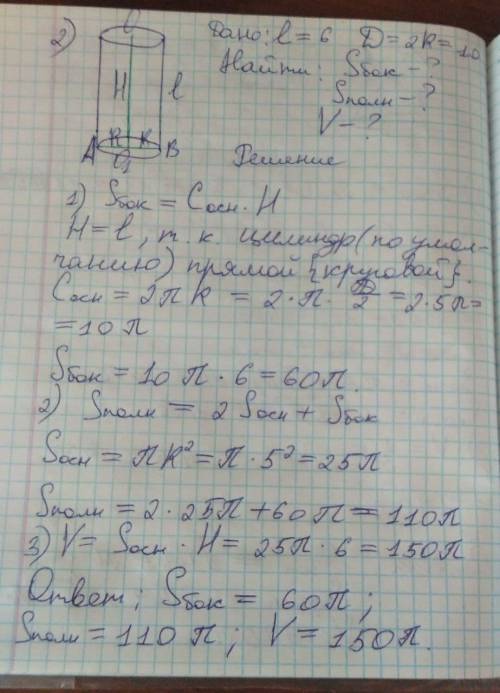 2) Дано: l = 6 D = 2R = 10
Найти: Sбок - ?
Sполн - ?
V - ?
H l
R R
A O₁ B
Решение
1) Sбок = Cосн · H
H = l, т. к. цилиндр (по умол-
чанию) прямой {круговой}.
Cосн = 2πR = 2 · π · D/2 = 2 · 5π =
= 10π
Sбок = 10π · 6 = 60π.
2) Sполн = 2 Sосн + Sбок
Sосн = πR² = π · 5² = 25π
Sполн = 2 · 25π + 60π = 110π
3) V = Sосн · H = 25π · 6 = 150π
Ответ: Sбок = 60π;
Sполн = 110π; V = 150π.